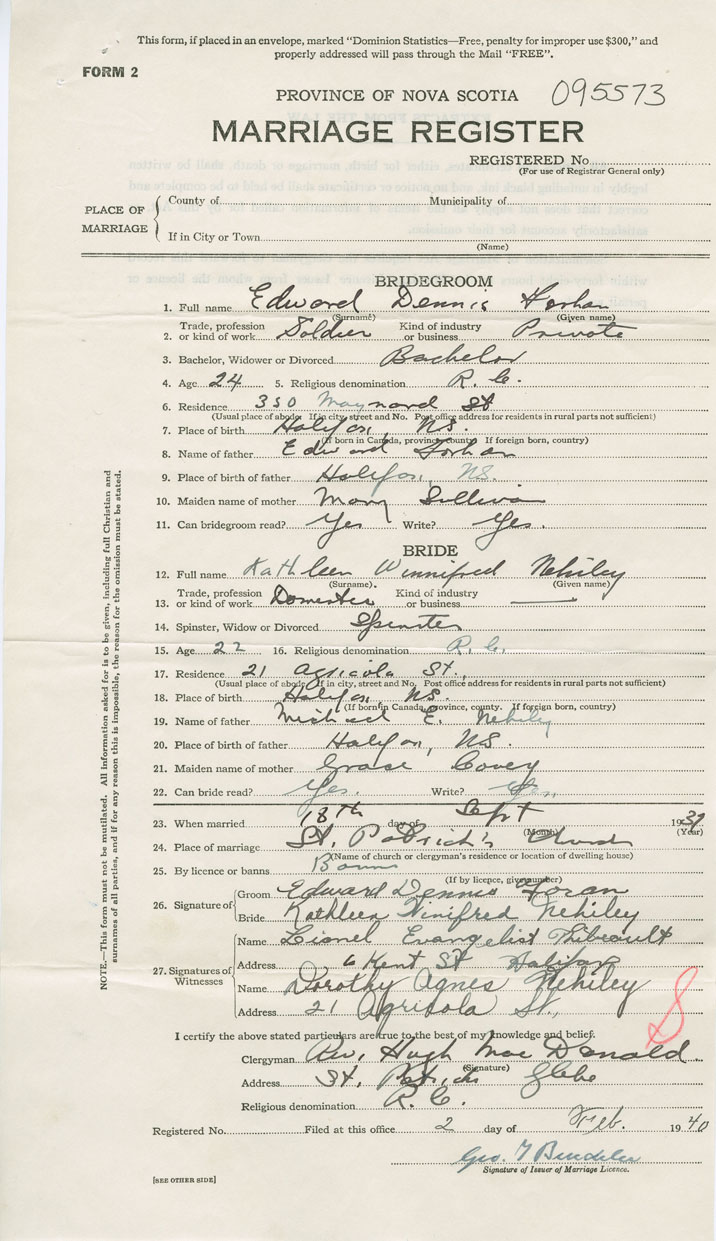 This form, if placed in an envelope, marked "Dominion Statistics—Free, penalty for improper use $300," and
properly addressed will pass through the Mail "FREE".
FORM 2
PROVINCE OF NOVA SCOTIA 095573
MARRIAGE REGISTER
REGISTERED No.
(For use of Registrar General only)
PLACE OF MARRIAGE
County of Municipality of
If in City or Town
(Name)
BRIDEGROOM
1. Full name Edward Dennis
(Surname) (Given name)
2. Trade, profession or kind of work Soldier Kind of industry or business Private
3. Bachelor, Widower or Divorced Bachelor
4. Age 24 5. Religious denomination R. C.
6. Residence 350 Maynard St
(Usual place of abode. If in city, street and No. Post office address for residents in rural parts not sufficient)
7. Place of birth Halifax, NS.
(If born in Canada, province, county. If foreign born, country)
8. Name of father Edward
9. Place of birth of father Halifax, NS.
10. Maiden name of mother Mary Sullivan
11. Can bridegroom read? Yes Write? Yes.
BRIDE
12. Full name Kathleen Winnifred Nehiley
(Surname). (Given name)
13. Trade, profession or kind of work Domestic Kind of industry or business —
14. Spinster, Widow or Divorced Spinster
15. Age 22 16. Religious denomination R. C.
17. Residence 21 Agricola St.,
(Usual place of abode. If in city, street and No. Post office address for residents in rural parts not sufficient)
18. Place of birth Halifax, NS.
(If born in Canada, province, county. If foreign born, country)
19. Name of father Michael E. Nehiley
20. Place of birth of father Halifax, NS.
21. Maiden name of mother Grace Covey
22. Can bride read? Yes. Write? Yes.
23. When married 18th day of Sept 1939
(Month) (Year)
24. Place of marriage St. Patrick's Church
(Name of church or clergyman's residence or location of dwelling house)
25. By licence or banns Banns
(If by licence, give number)
26. Signature of
Groom Edward Dennis Foran
Bride Kathleen Winifred Nehiley
27. Signatures of Witnesses
Name Lionel Evangelist Thibeault
Address 6 Kent St Halifax
Name Dorothy Agnes Nehiley
Address 21 Agricola St.,
I certify the above stated particulars are true to the best of my knowledge and belief.
Clergyman Rev. Hugh MacDonald
(Signature)
Address St. Patricks Glebe
Religious denomination R. C.
Registered No. Filed at this office 2 day of Feb. 1940
Geo. T
Signature of Issuer of Marriage Licence.
[SEE OTHER SIDE]
NOTE.—This form must not be mutilated. All information asked for is to be given, including full Christian and
surnames of all parties, and if for any reason this is impossible, the reason for the omission must be stated.